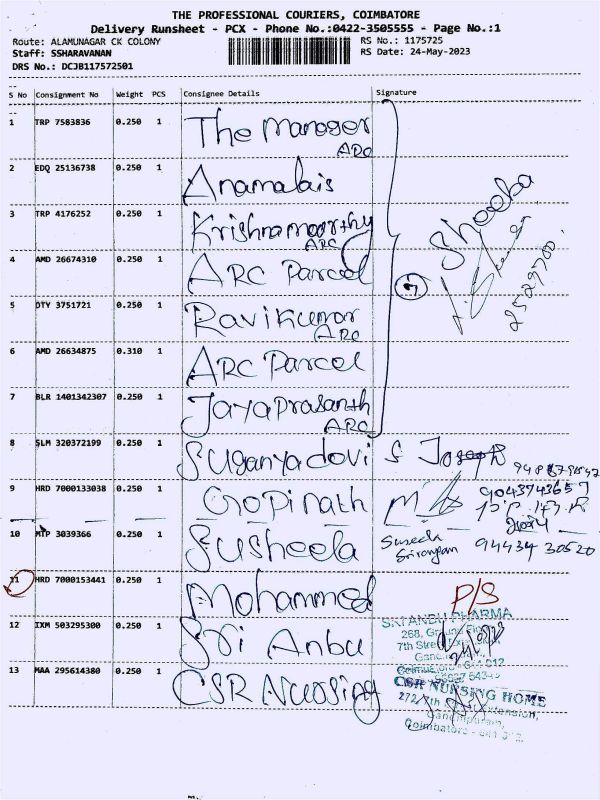 THE PROFESSIONAL COURIERS, COIMBATORE
Delivery Runsheet - PCX - Phone No.:0422-3505555 - Page No.:1
Route: ALAMUNAGAR CK COLONY
RS No.: 1175725
Staff: SSHARAVANAN
RS Date: 24-May-2023
DRS No.: DCJB117572501
S No Consignment No Weight PCS Consignee Details Signature
1 TRP 7583836 0.250 1 The Manager
ARC
2 EDQ 25136738 0.250 1 Anamalais
3 TRP 4176252 0.250 1 Krishnamoorthy
ARC
4 AMD 26674310 0.250 1 ARC Parcel
7 Sheeba
5 DTY 3751721 0.250 1 Ravikumar
ARC
6 AMD 26634875 0.310 1 ARC Parcel
7 BLR 1401342307 0.250 1 Jayaprasanth
ARC
8 SLM 320372199 0.250 1 Suganyadevi S Joseph
9 HRD 7000133038 0.250 1 Gopinath
9043743657
10 MTP 3039366 0.250 1 Susheela
94434 30520
11 HRD 7000153441 0.250 1 Mohammed P/S
12 IXM 503295300 0.250 1 Sri Anbu
SRI ANBU PHARMA
268, Ground Floor
7th Street
13 MAA 295614380 0.250 1 CSR Nursing
CSR NURSING HOME
Gandhipuram,
Coimbatore - 641 012.